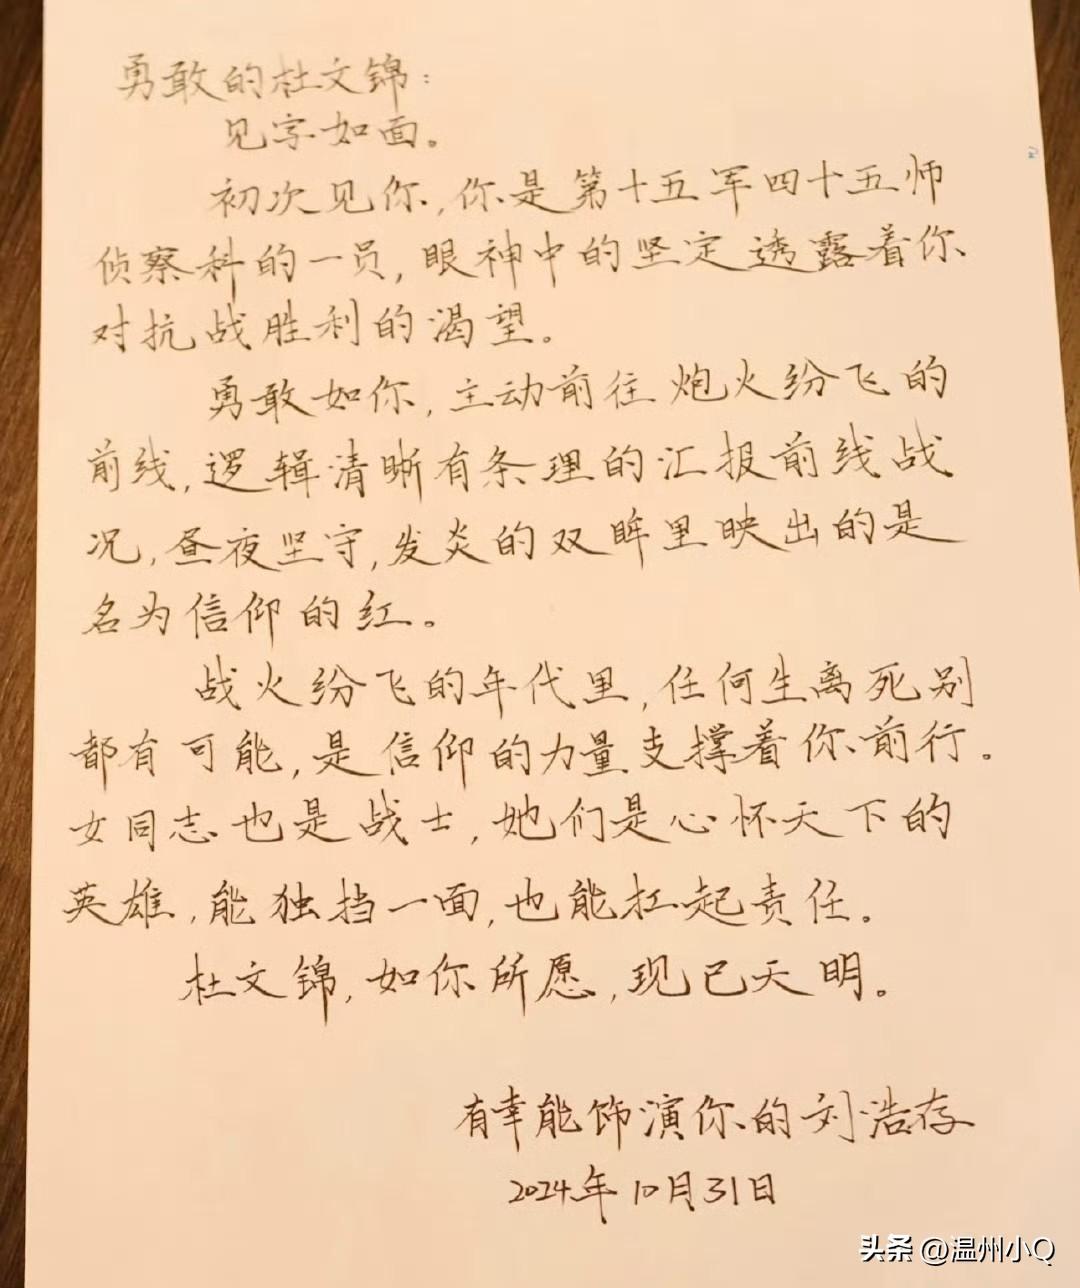 勇敢的杜文锦:
见字如面。
初次见你,你是第十五军四十五师
侦察科的一员,眼神中的坚定透露着你
对抗战胜利的渴望。
勇敢如你,主动前往炮火纷飞的
前线,逻辑清晰有条理的汇报前线战
况,昼夜坚守,发炎的双眸里映出的是
名为信仰的红。
战火纷飞的年代里,任何生离死别
都有可能,是信仰的力量支撑着你前行。
女同志也是战士,她们是心怀天下的
英雄,能独挡一面,也能扛起责任。
杜文锦,如你所愿,现已天明。
有幸能饰演你的刘浩存
2024年10月31日
头条 @温州小Q